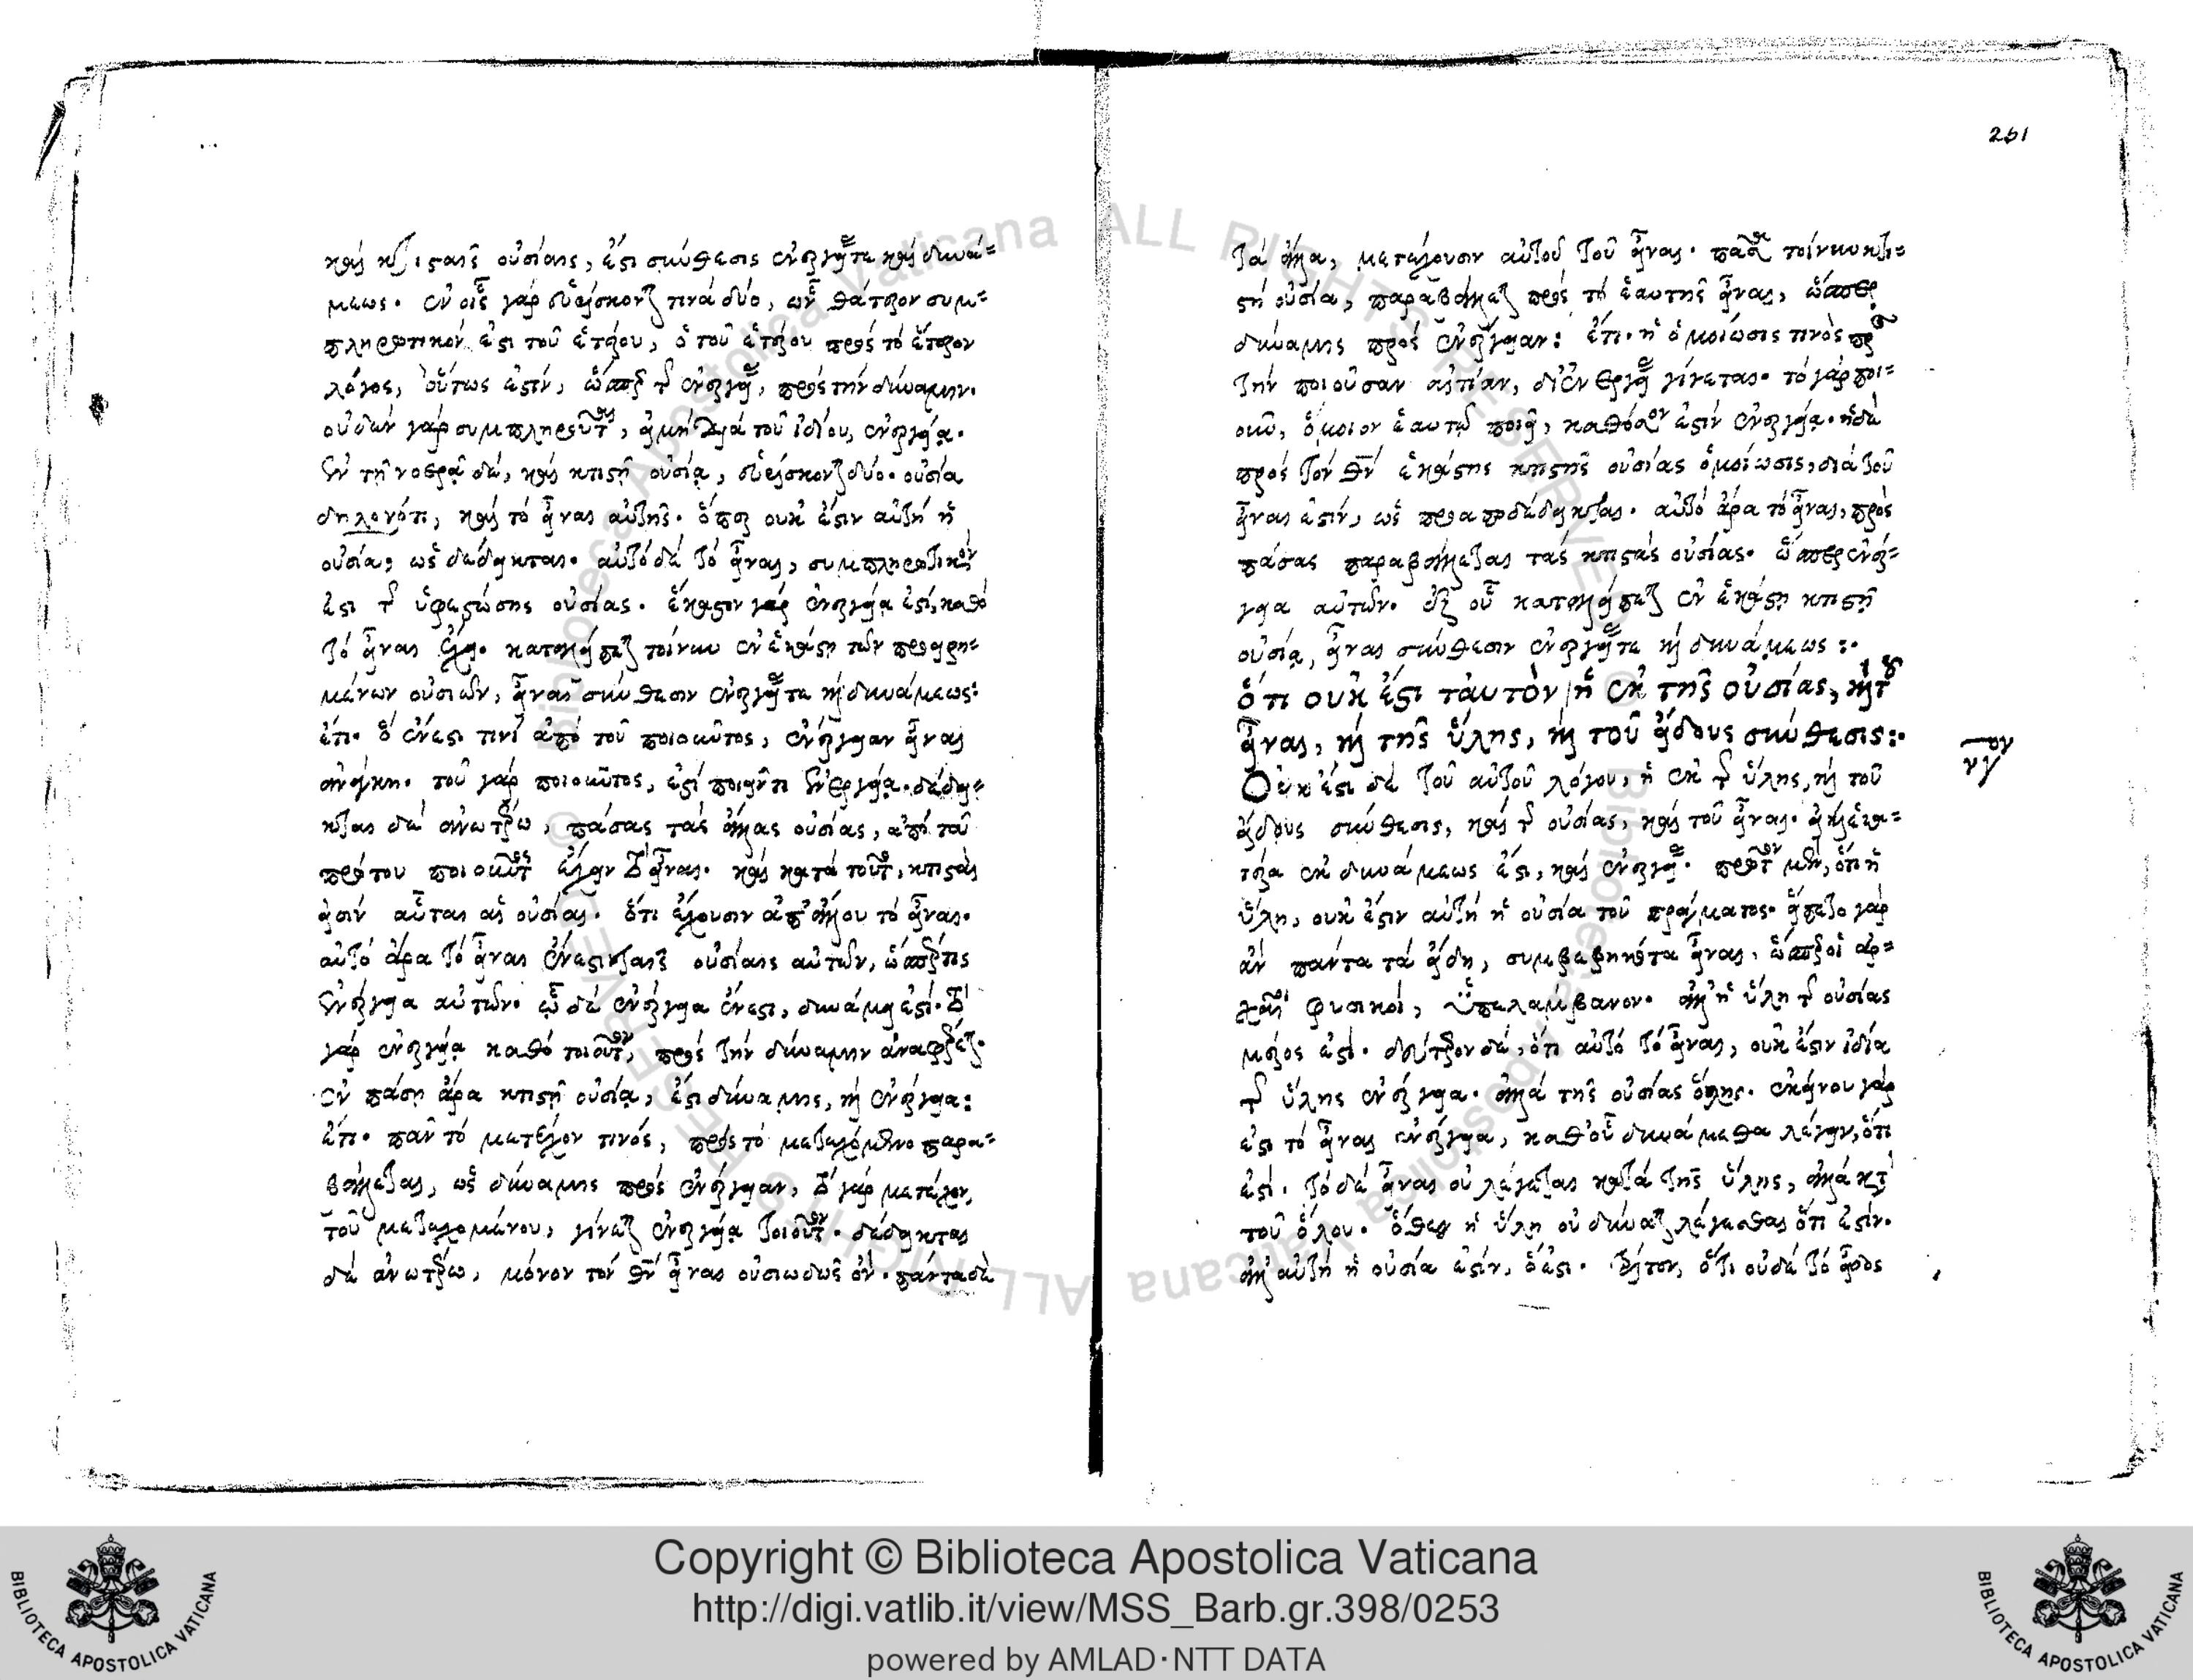 καὶ κτισταῖς οὐσίαις, ἔστι σύνθεσις ἐνεργείας τε καὶ δυνά=
μεως. ἐν οἷς γὰρ εὑρίσκονται τινὰ δύο, ὧν θάτερον συμ=
πληρωτικόν ἐστι τοῦ ἑτέρου, ὁ τοῦ ἑτέρου πρὸς τὸ ἕτερον
λόγος, οὕτως ἐστίν, ὥσπερ τῆς ἐνεργείας, πρὸς τὴν δύναμιν.
οὐδὲν γὰρ συμπληροῦται, εἰ μὴ διὰ τοῦ ἰδίου, ἐνεργείᾳ.
ἐν τῇ νοερᾷ δὲ, καὶ κτιστῇ οὐσίᾳ, εὑρίσκονται δύο. οὐσία
δηλονότι, καὶ τὸ εἶναι αὐτῆς. ὅπερ οὐκ ἔστιν αὐτὴ ἡ
οὐσία, ὡς δέδεικται. αὐτὸ δὲ τὸ εἶναι, συμπληρωτικόν
ἐστι τῆς ὑφεστώσης οὐσίας. ἕκαστον γὰρ ἐνεργείᾳ ἐστί, καθὸ
τὸ εἶναι ἔχει. καταλείπεται τοίνυν ἐν ἑκάστῃ τῶν προειρη=
μένων οὐσιῶν, εἶναι σύνθεσιν ἐνεργείας τε καὶ δυνάμεως:
ἔτι. ὃ ἔνεστι τινὶ ἀπὸ τοῦ ποιοῦντος, ἐνέργειαν εἶναι
ἀνάγκη. τοῦ γὰρ ποιοῦντος, ἐστὶ ποιεῖν τι ἐνεργείᾳ. δέδει=
κται δὲ ἀνωτέρω, πάσας τὰς ἄλλας οὐσίας, ἀπὸ τοῦ
πρώτου ποιοῦντος ἔχειν τὸ εἶναι. καὶ κατὰ τοῦτο, κτισταὶ
εἰσὶν αὗται αἱ οὐσίαι. ὅτι ἔχουσιν ἀπ' ἄλλου τὸ εἶναι.
αὐτὸ ἄρα τὸ εἶναι ἔνεστι κτισταῖς οὐσίαις αὐτῶν, ὥσπερ τις
ἐνέργεια αὐτῶν. ᾧ δὲ ἐνέργεια ἔνεστι, δυνάμει ἐστί. τὸ
γὰρ ἐνεργείᾳ καθὸ τοιοῦτον, πρὸς τὴν δύναμιν ἀναφέρεται.
ἐν πάσῃ ἄρα κτιστῇ οὐσίᾳ, ἐστὶ δύναμις, καὶ ἐνέργεια:
ἔτι. πᾶν τὸ μετέχον τινός, πρὸς τὸ μετεχόμενον παρα=
βάλλεται, ὡς δύναμις πρὸς ἐνέργειαν, τὸ γὰρ μετέχον,
τοῦ μετεχομένου, γίνεται ἐνεργείᾳ τοιοῦτον. δέδεικται
δὲ ἀνωτέρω, μόνον τὸν θν εἶναι οὐσιωδῶς ὄν. πάντα δὲ
261
τὰ ἄλλα, μετέχουσιν αὐτοῦ τοῦ εἶναι. πᾶσα τοίνυν κτι=
στὴ οὐσία, παραβάλλεται πρὸς τὸ ἑαυτῆς εἶναι, ὥσπερ
δύναμις πρὸς ἐνέργειαν: ἔτι. ἡ ὁμοίωσις τινὸς πρὸς
τὴν ποιοῦσαν αἰτίαν, δι' ἐνεργείας γίνεται. τὸ γὰρ ποι=
οῦν, ὅμοιον ἑαυτῷ ποιεῖ, καθόσον ἐστὶν ἐνεργείᾳ. ἡ δὲ
πρὸς τὸν θν ἑκάστης κτιστῆς οὐσίας ὁμοίωσις, διὰ τοῦ
εἶναι ἐστίν, ὡς προαποδέδεικται. αὐτὸ ἄρα τὸ εἶναι, πρὸς
πάσας παραβάλλεται τὰς κτιστὰς οὐσίας. ὥσπερ ἐνέρ=
γεια αὐτῶν. ἐξ οὗ καταλείπεται ἐν ἑκάστῃ κτιστῇ
οὐσίᾳ, εἶναι σύνθεσιν ἐνεργείας τε καὶ δυνάμεως:.
ὅτι οὐκ ἔστι ταυτὸν ἡ ἐκ τῆς οὐσίας, καὶ τοῦ
εἶναι, καὶ τῆς ὕλης, καὶ τοῦ εἴδους σύνθεσις:.
νγον
Οὐκ ἔστι δὲ τοῦ αὐτοῦ λόγου, ἡ ἐκ τῆς ὕλης, καὶ τοῦ
εἴδους σύνθεσις, καὶ τῆς οὐσίας, καὶ τοῦ εἶναι. εἰ καὶ ἑκα=
τέρα ἐκ δυνάμεως ἐστι, καὶ ἐνεργείας. πρῶτον μὲν, ὅτι ἡ
ὕλη, οὐκ ἔστιν αὐτὴ ἡ οὐσία τοῦ πράγματος. εἵπετο γὰρ
ἂν πάντα τὰ εἴδη, συμβεβηκότα εἶναι, ὥσπερ οἱ ἀρ=
χαῖοι φυσικοί, ὑπελάμβανον. ἀλλ' ἡ ὕλη τῆς οὐσίας
μέρος ἐστί. δεύτερον δὲ, ὅτι αὐτὸ τὸ εἶναι, οὐκ ἔστιν ἰδία
τῆς ὕλης ἐνέργεια. ἀλλὰ τῆς οὐσίας ὅλης. ἐκείνου γὰρ
ἐστι τὸ εἶναι ἐνέργεια, καθ' οὗ δυνάμεθα λέγειν, ὅτι
ἐστί. τὸ δὲ εἶναι οὐ λέγεται κατὰ τῆς ὕλης, ἀλλὰ κατὰ
τοῦ ὅλου. ὅθεν ἡ ὕλη οὐ δύναται λέγεσθαι ὅτι ἐστίν.
ἀλλ' αὐτὴ ἡ οὐσία ἐστίν, ὅ ἐστι. τρίτον, ὅτι οὐδὲ τὸ εἶδος
Copyright © Biblioteca Apostolica Vaticana
http://digi.vatlib.it/view/MSS_Barb.gr.398/0253
powered by AMLAD·NTT DATA
BIBLIOTECA APOSTOLICA VATICANA
BIBLIOTECA APOSTOLICA VATICANA